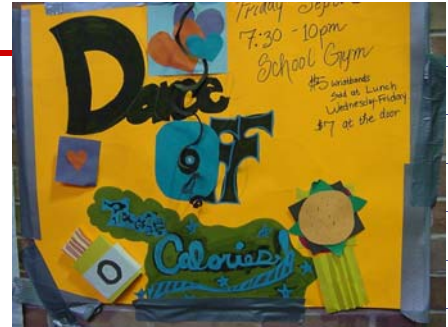 Friday
7:30 - 10pm
School Gym
$5 wristbands
Sold at Lunch
Wednesday-Friday
$7 at the door
Dance
Off
Those
Calories!